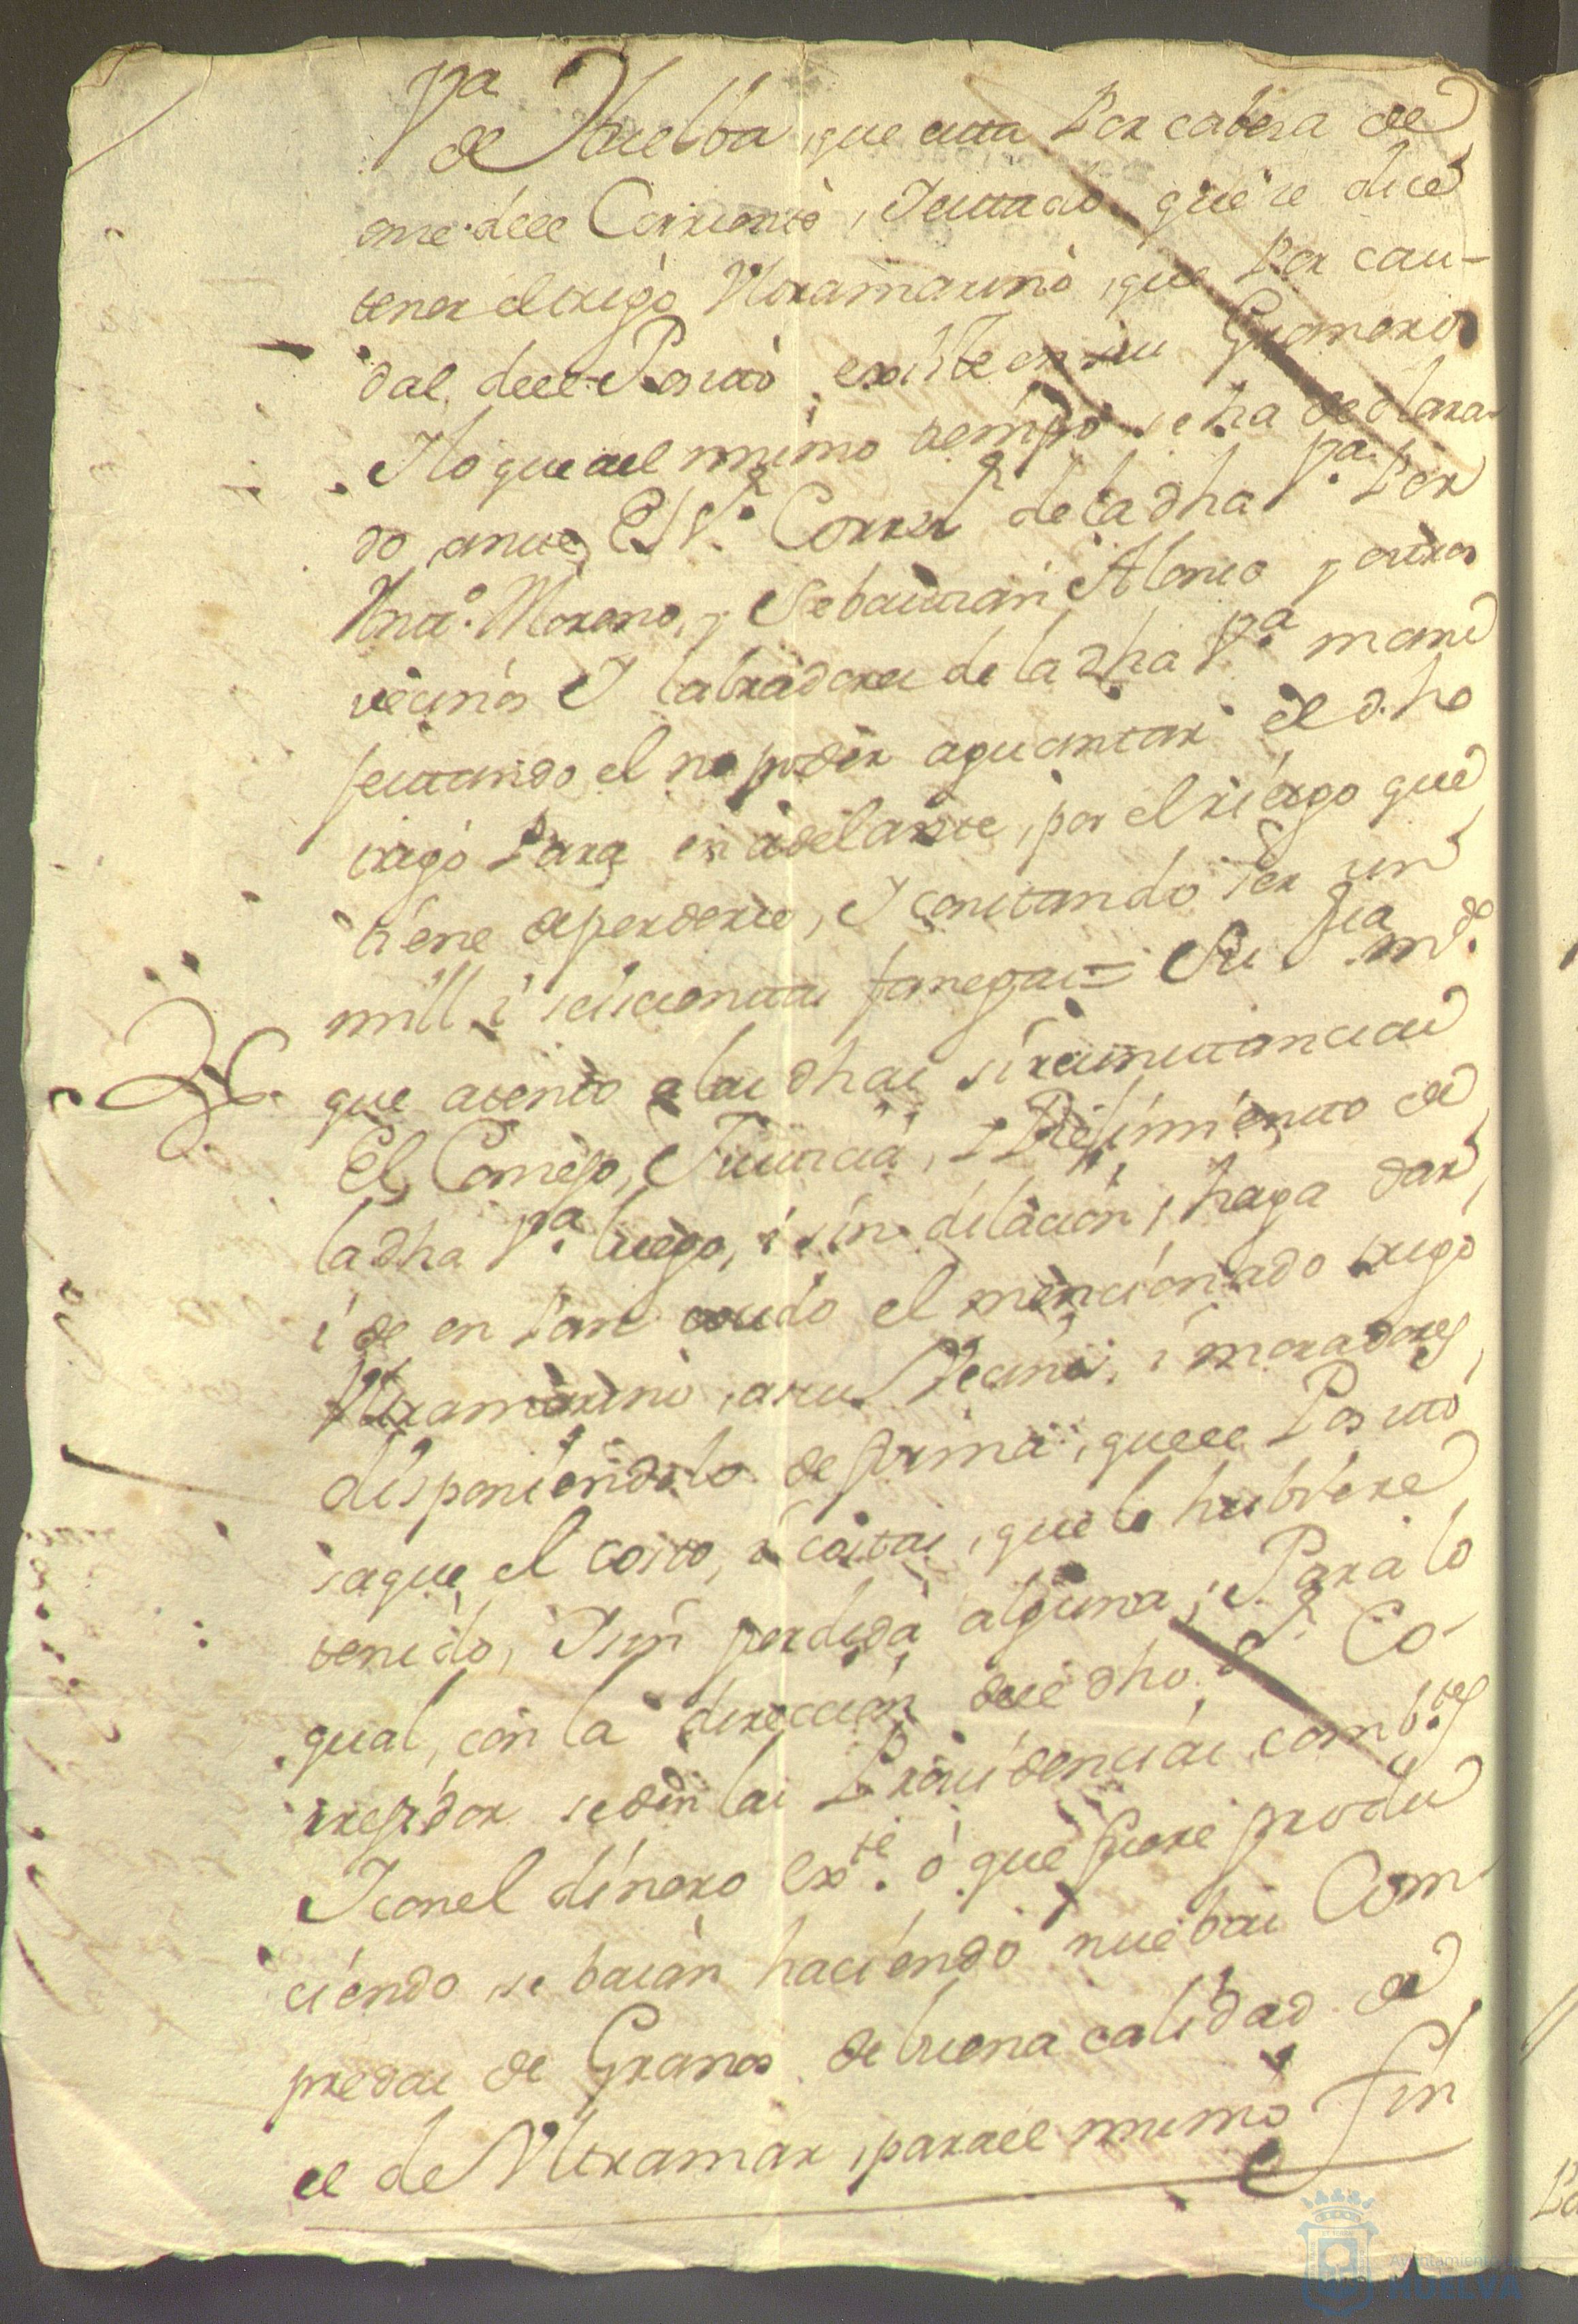 V.ª
de Huelba, que esta Por cabesa de
onse deel Corriente, Testado que se dice
tener el trigo Vltramarino, que Por cau-
dal deel Posito existe en su Granero
Ylo que ael mismo tiempo se ha declara-
do ante El S.r Corr.r de la dha V.ª Por
Ant.º Moreno, y Sebastian Alonso y otros
vecinos Y labradores de la dha V.ª mani
festando el no poder aguantar el dho
trigo Para en adelante, por el riesgo que
tiene de perderse, Y constando ser un
mill i seiscientas fanegas = Su S.ria m.do
que atento a las dhas sircunstancias
El Consejo, Justicia, i Rejimiento de
la dha V.ª luego, i sin dilacion, haga dar
i de en Pan cosido el mencionado trigo
Vltramarino, a sus Vecinos, i moradores
disponiendolo de forma, que el Posito
saque el costo, i costas, que le hubiere
tenido, Y sin perdida alguna; Para lo
qual, con la direccion deel dho S.r Co-
rregidor se den las Providencias comb.tes
Y con el dinero ex.te o que fuere produ
ciendo se baian haciendo nuebas Com
predas de Granos de buena calidad de
el de Vltramar, para el mismo fin
Ayuntamiento
HUELVA